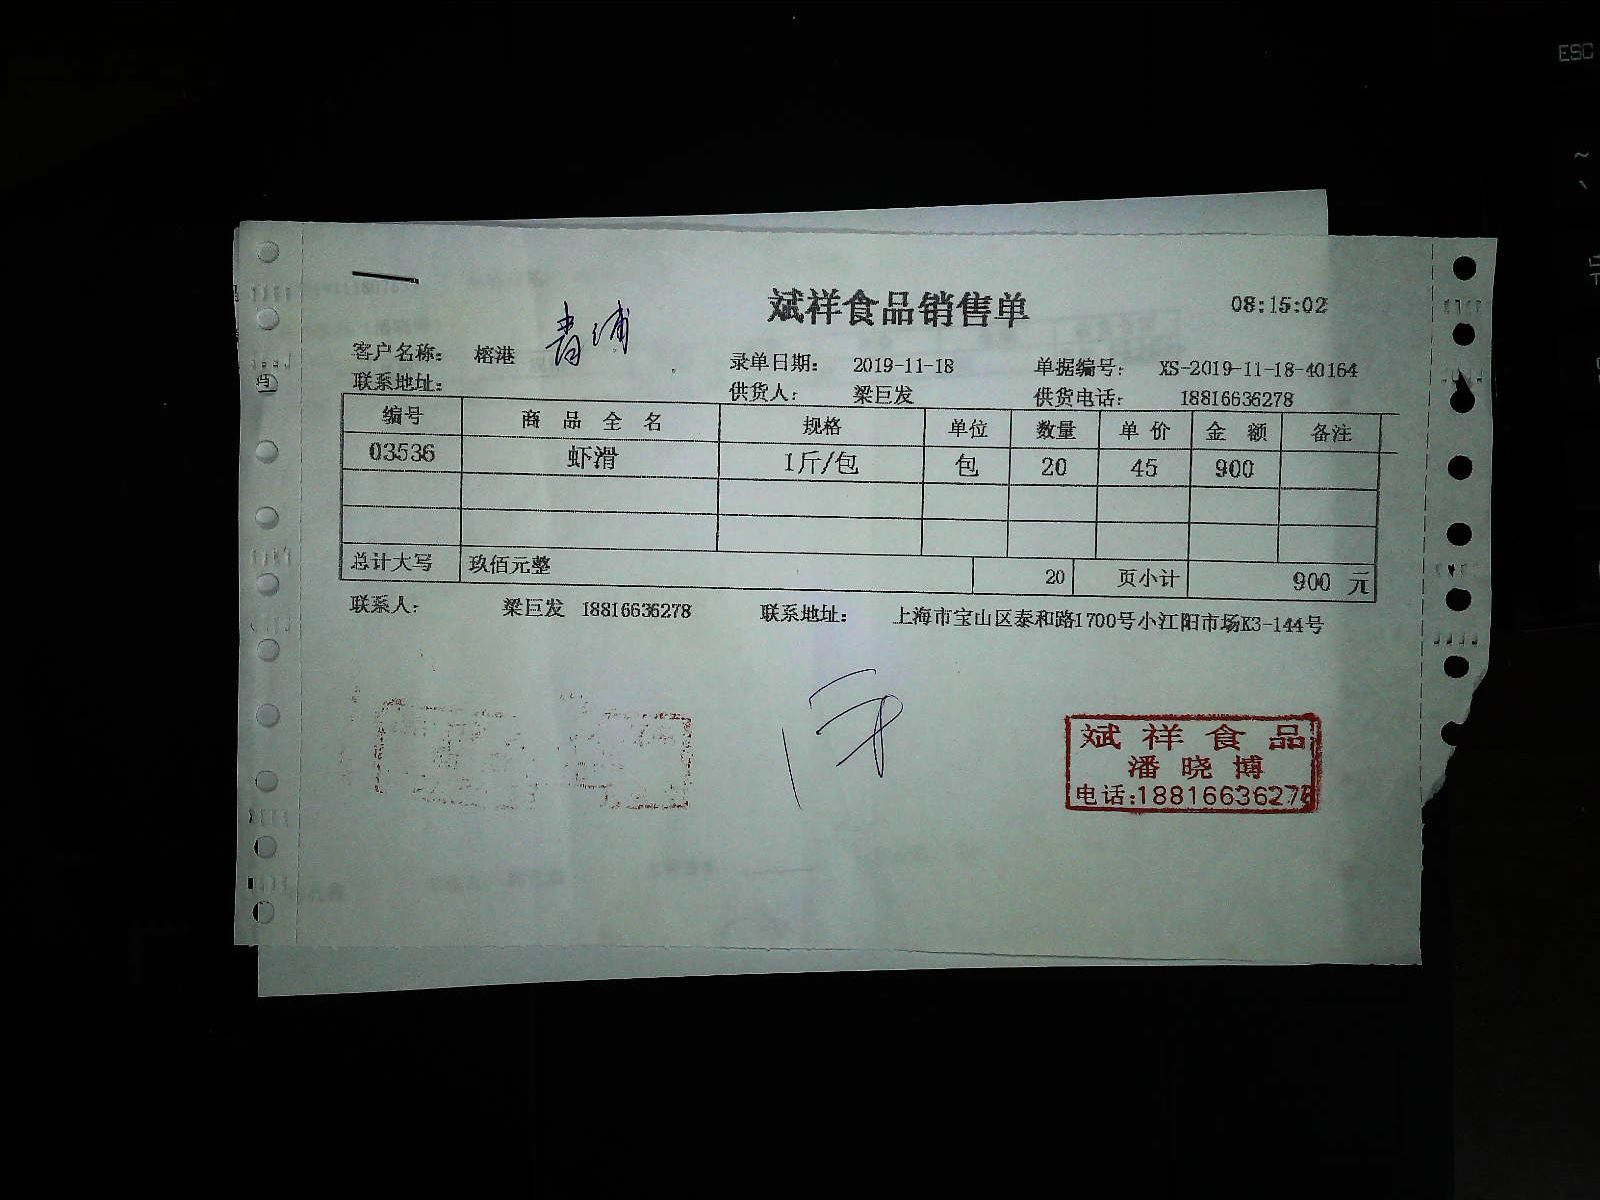 斌祥食品销售单
08:15:02
客户名称： 榕港 青浦
录单日期： 2019-11-18 单据编号： XS-2019-11-18-40164
联系地址： 供货人： 梁巨发 供货电话： 18816636278
编号 商品全名 规格 单位 数量 单价 金额 备注
03536 虾滑 1斤/包 包 20 45 900
总计大写 玖佰元整 20 页小计 900 元
联系人： 梁巨发 18816636278 联系地址： 上海市宝山区泰和路1700号小江阳市场K3-144号
斌祥食品
潘晓博
电话:18816636278
ESC